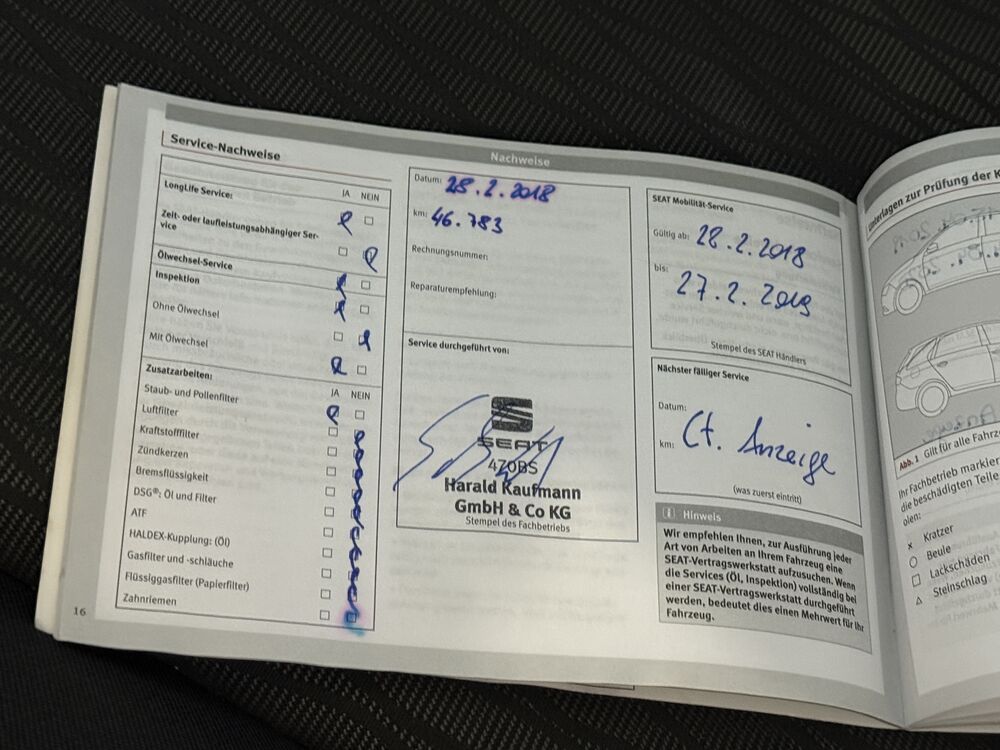 Service-Nachweise
JA NEIN
LongLife Service:
Zeit- oder laufleistungsabhängiger Ser-
vice
Ölwechsel-Service
Inspektion
Ohne Ölwechsel
Mit Ölwechsel
Zusatzarbeiten: JA NEIN
Staub- und Pollenfilter
Luftfilter
Kraftstofffilter
Zündkerzen
Bremsflüssigkeit
DSG®: Öl und Filter
ATF
HALDEX-Kupplung: (Öl)
Gasfilter und -schläuche
Flüssiggasfilter (Papierfilter)
Zahnriemen
16
Nachweise
Datum: 28.2.2018
km: 46.783
Rechnungsnummer:
Reparaturempfehlung:
Service durchgeführt von:
SEAT
470BS
Harald Kaufmann
GmbH & Co KG
Stempel des Fachbetriebs
SEAT Mobilität-Service
Gültig ab: 28.2.2018
bis: 27.2.2019
Stempel des SEAT Händlers
Nächster fälliger Service
Datum:
km: Lt. Anzeige
(was zuerst eintritt)
i Hinweis
Wir empfehlen Ihnen, zur Ausführung jeder
Art von Arbeiten an Ihrem Fahrzeug eine
SEAT-Vertragswerkstatt aufzusuchen. Wenn
die Services (Öl, Inspektion) vollständig bei
einer SEAT-Vertragswerkstatt durchgeführt
werden, bedeutet dies einen Mehrwert für Ihr
Fahrzeug.
Unterlagen zur Prüfung der K
Abb. 1 Gilt für alle Fahrze
Ihr Fachbetrieb markier
die beschädigten Teile
olen:
x Kratzer
○ Beule
□ Lackschäden
△ Steinschlag